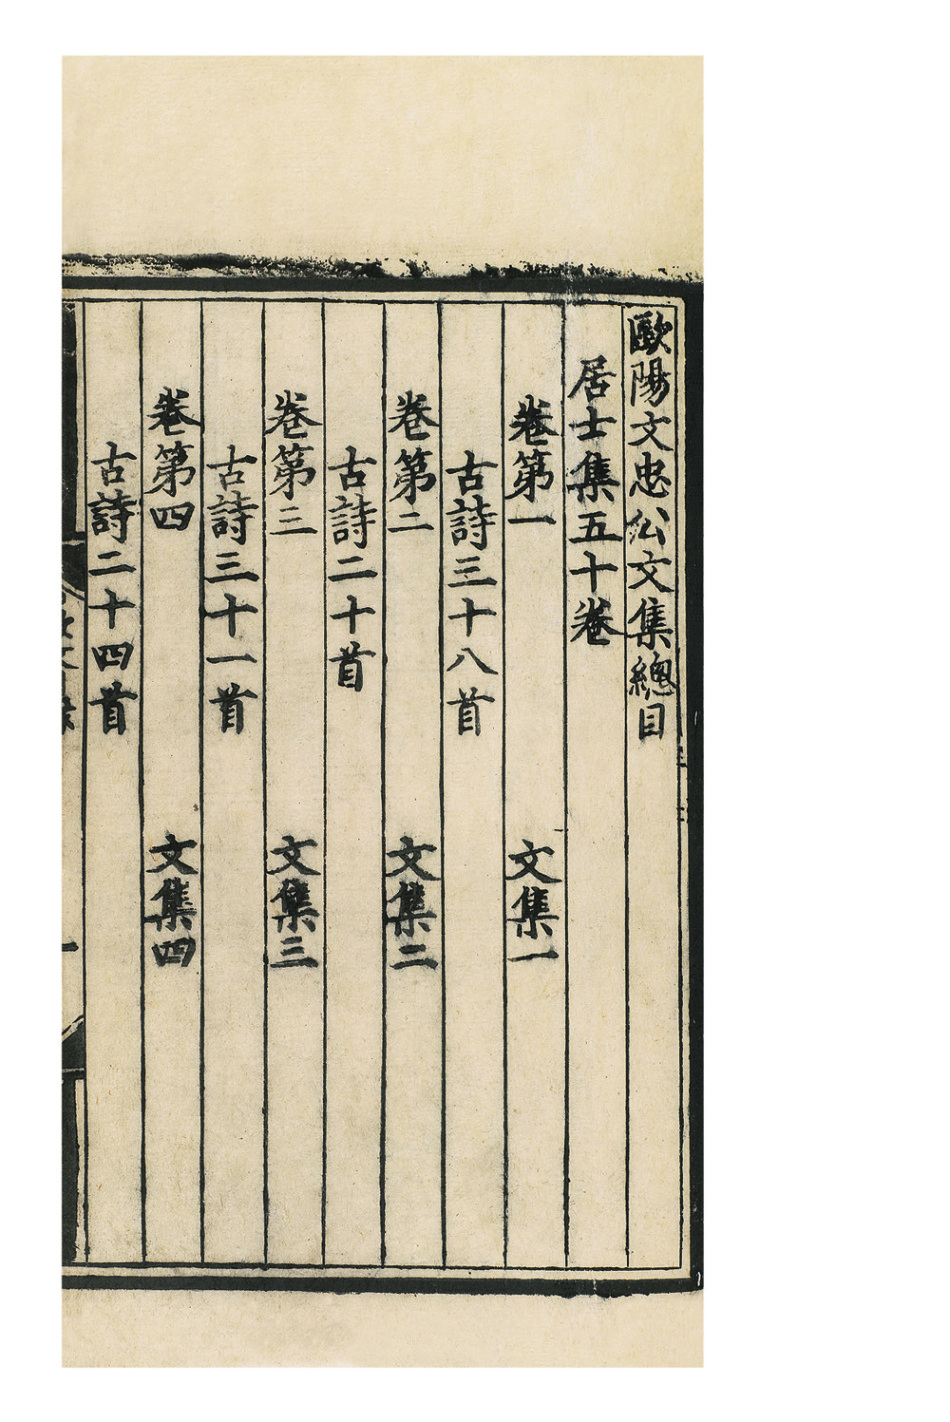 歐陽文忠公文集總目
居士集五十卷
卷第一 文集一
古詩三十八首
卷第二 文集二
古詩二十首
卷第三 文集三
古詩三十一首
卷第四 文集四
古詩二十四首